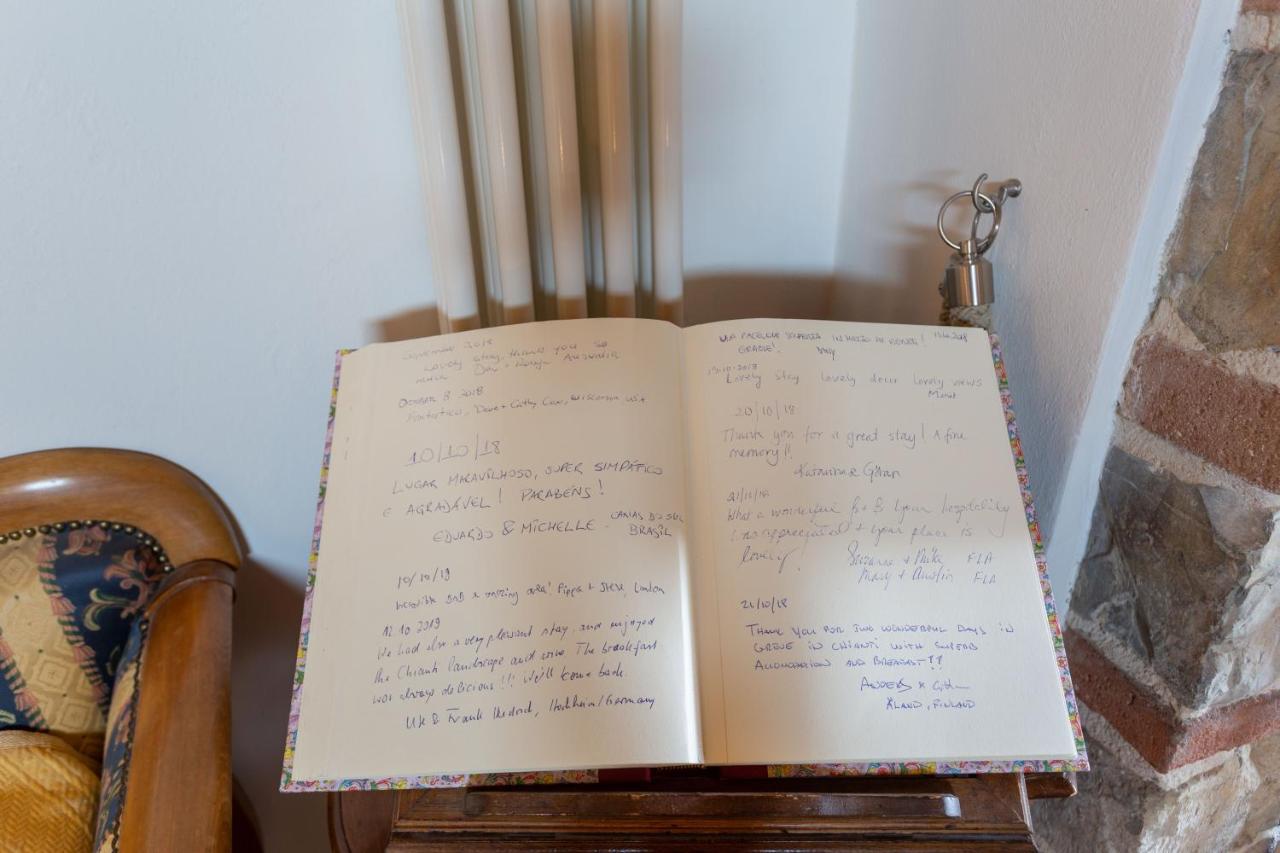 September 2018
Lovely stay, thank you so
much Dav + Australia
October 8 2018
Fantastico, Dave + Cathy Cox, Wisconsin USA
10/10/18
LUGAR MARAVILHOSO, SUPER SIMPÁTICO
E AGRADÁVEL! PARABÉNS!
EDUARDO & MICHELLE - CAXIAS DO SUL
BRASIL
10/10/19
Incredible BnB & amazing area! Pippa + Steve, London
12.10 2019
We had also a very pleasant stay, and enjoyed
the Chianti landscape and wine. The breakfast
was always delicious!!! We'll come back.
& Frank Hockenheim/Germany
UNA PIACEVOLE SCOPERTA IN MEZZO AI
GRAZIE!
19.10.2018
Lovely stay lovely decor lovely views
20/10/18
Thank you for a great stay! A fine
memory!!
Katarina & Göran
21/10/18
What a wonderful B+B your hospitality
was appreciated + your place is
lovely!
Suzanne + Mike FLA
Mary + Austin FLA
21/10/18
THANK YOU FOR TWO WONDERFUL DAYS IN
GREVE IN CHIANTI WITH SUPERB
ACCOMODATION AND BREAKFAST!!
ANDERS &
ÅLAND, FINLAND